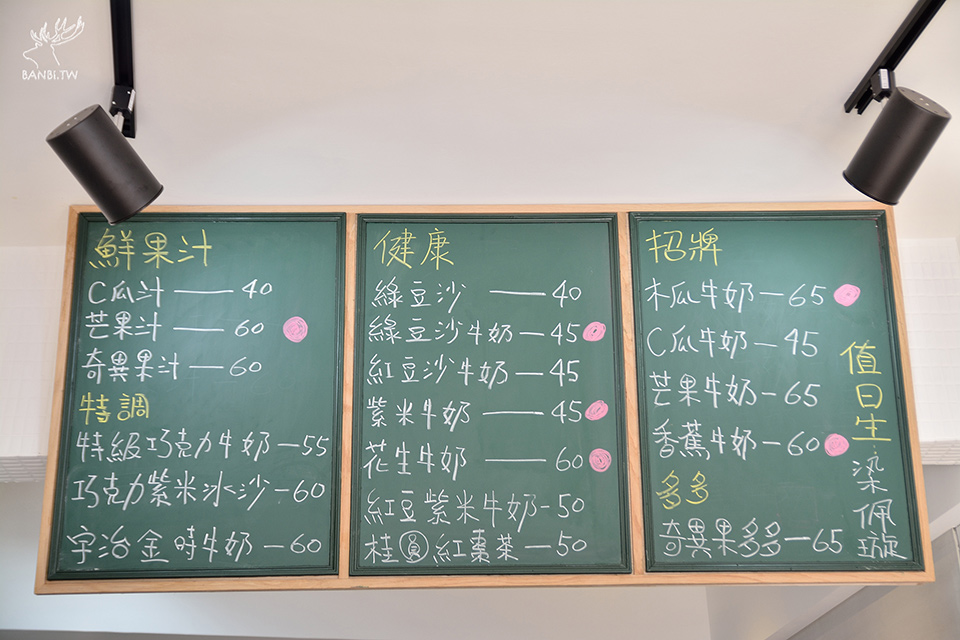 BANBI.TW
鮮果汁
C瓜汁 — 40
芒果汁 — 60
奇異果汁 — 60
特調
特級巧克力牛奶 — 55
巧克力紫米冰沙 — 60
宇治金時牛奶 — 60
健康
綠豆沙 — 40
綠豆沙牛奶 — 45
紅豆沙牛奶 — 45
紫米牛奶 — 45
花生牛奶 — 60
紅豆紫米牛奶 - 50
桂圓紅棗茶 — 50
招牌
木瓜牛奶 — 65
C瓜牛奶 — 45
芒果牛奶 — 65
香蕉牛奶 — 60
多多
奇異果多多 — 65
值日生
染佩璇